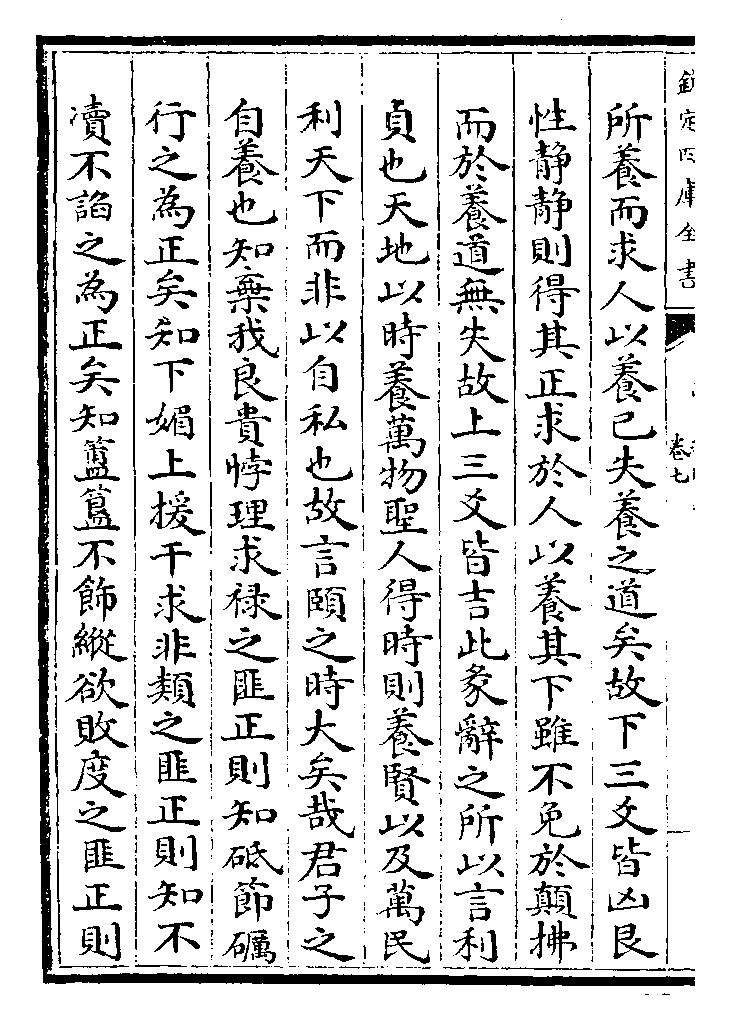 欽定四庫全書
卷七
所養而求人以養己失養之道矣故下三爻皆凶艮
性静静則得其正求於人以養其下雖不免於顛拂
而於養道無失故上三爻皆吉此彖辭之所以言利
貞也天地以時養萬物聖人得時則養賢以及萬民
利天下而非以自私也故言頤之時大矣哉君子之
自養也知棄我良貴悖理求禄之匪正則知砥節礪
行之為正矣知下媚上援干求非類之匪正則知不
凟不謟之為正矣知簠簋不飾縱欲敗度之匪正則